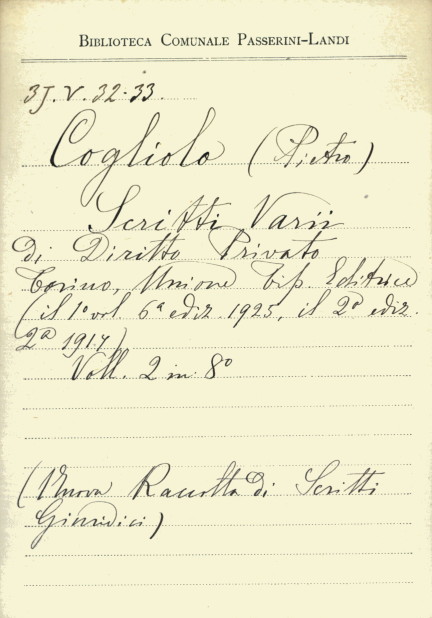 BIBLIOTECA COMUNALE PASSERINI-LANDI
3J. V. 32-33.
Cogliolo (Pietro)
Scritti Varii
di Diritto Privato
Torino, Unione Tip. Editrice
(il 1º vol. 6ª ediz. 1925, il 2º ediz.
2ª 1917)
Voll. 2 in 8º
(Nuova Raccolta di Scritti
Giuridici)